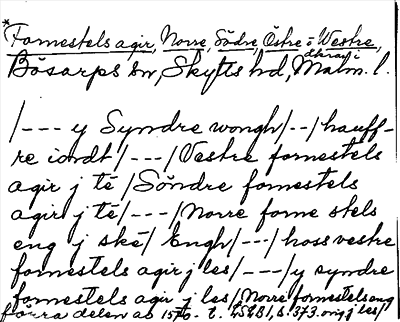 * Fornestels agir, Norre, Södre, Östre o Westre,
åkrar i
Bösarps sn, Skytts hd, Malm. l.
/--- y Syndre wongh/--/hauff-
re iordt/---/Vestre fornestels
agir j té/Söndre fornestels
agir j té/---/Norre forne stels
eng j ské/Engh/---/hoss vestre
fornestels agir j les/---/y syndre
fornestels agir j les/Norre fornestels eng
förra delen av 1570- t. s. 373. orig j les/